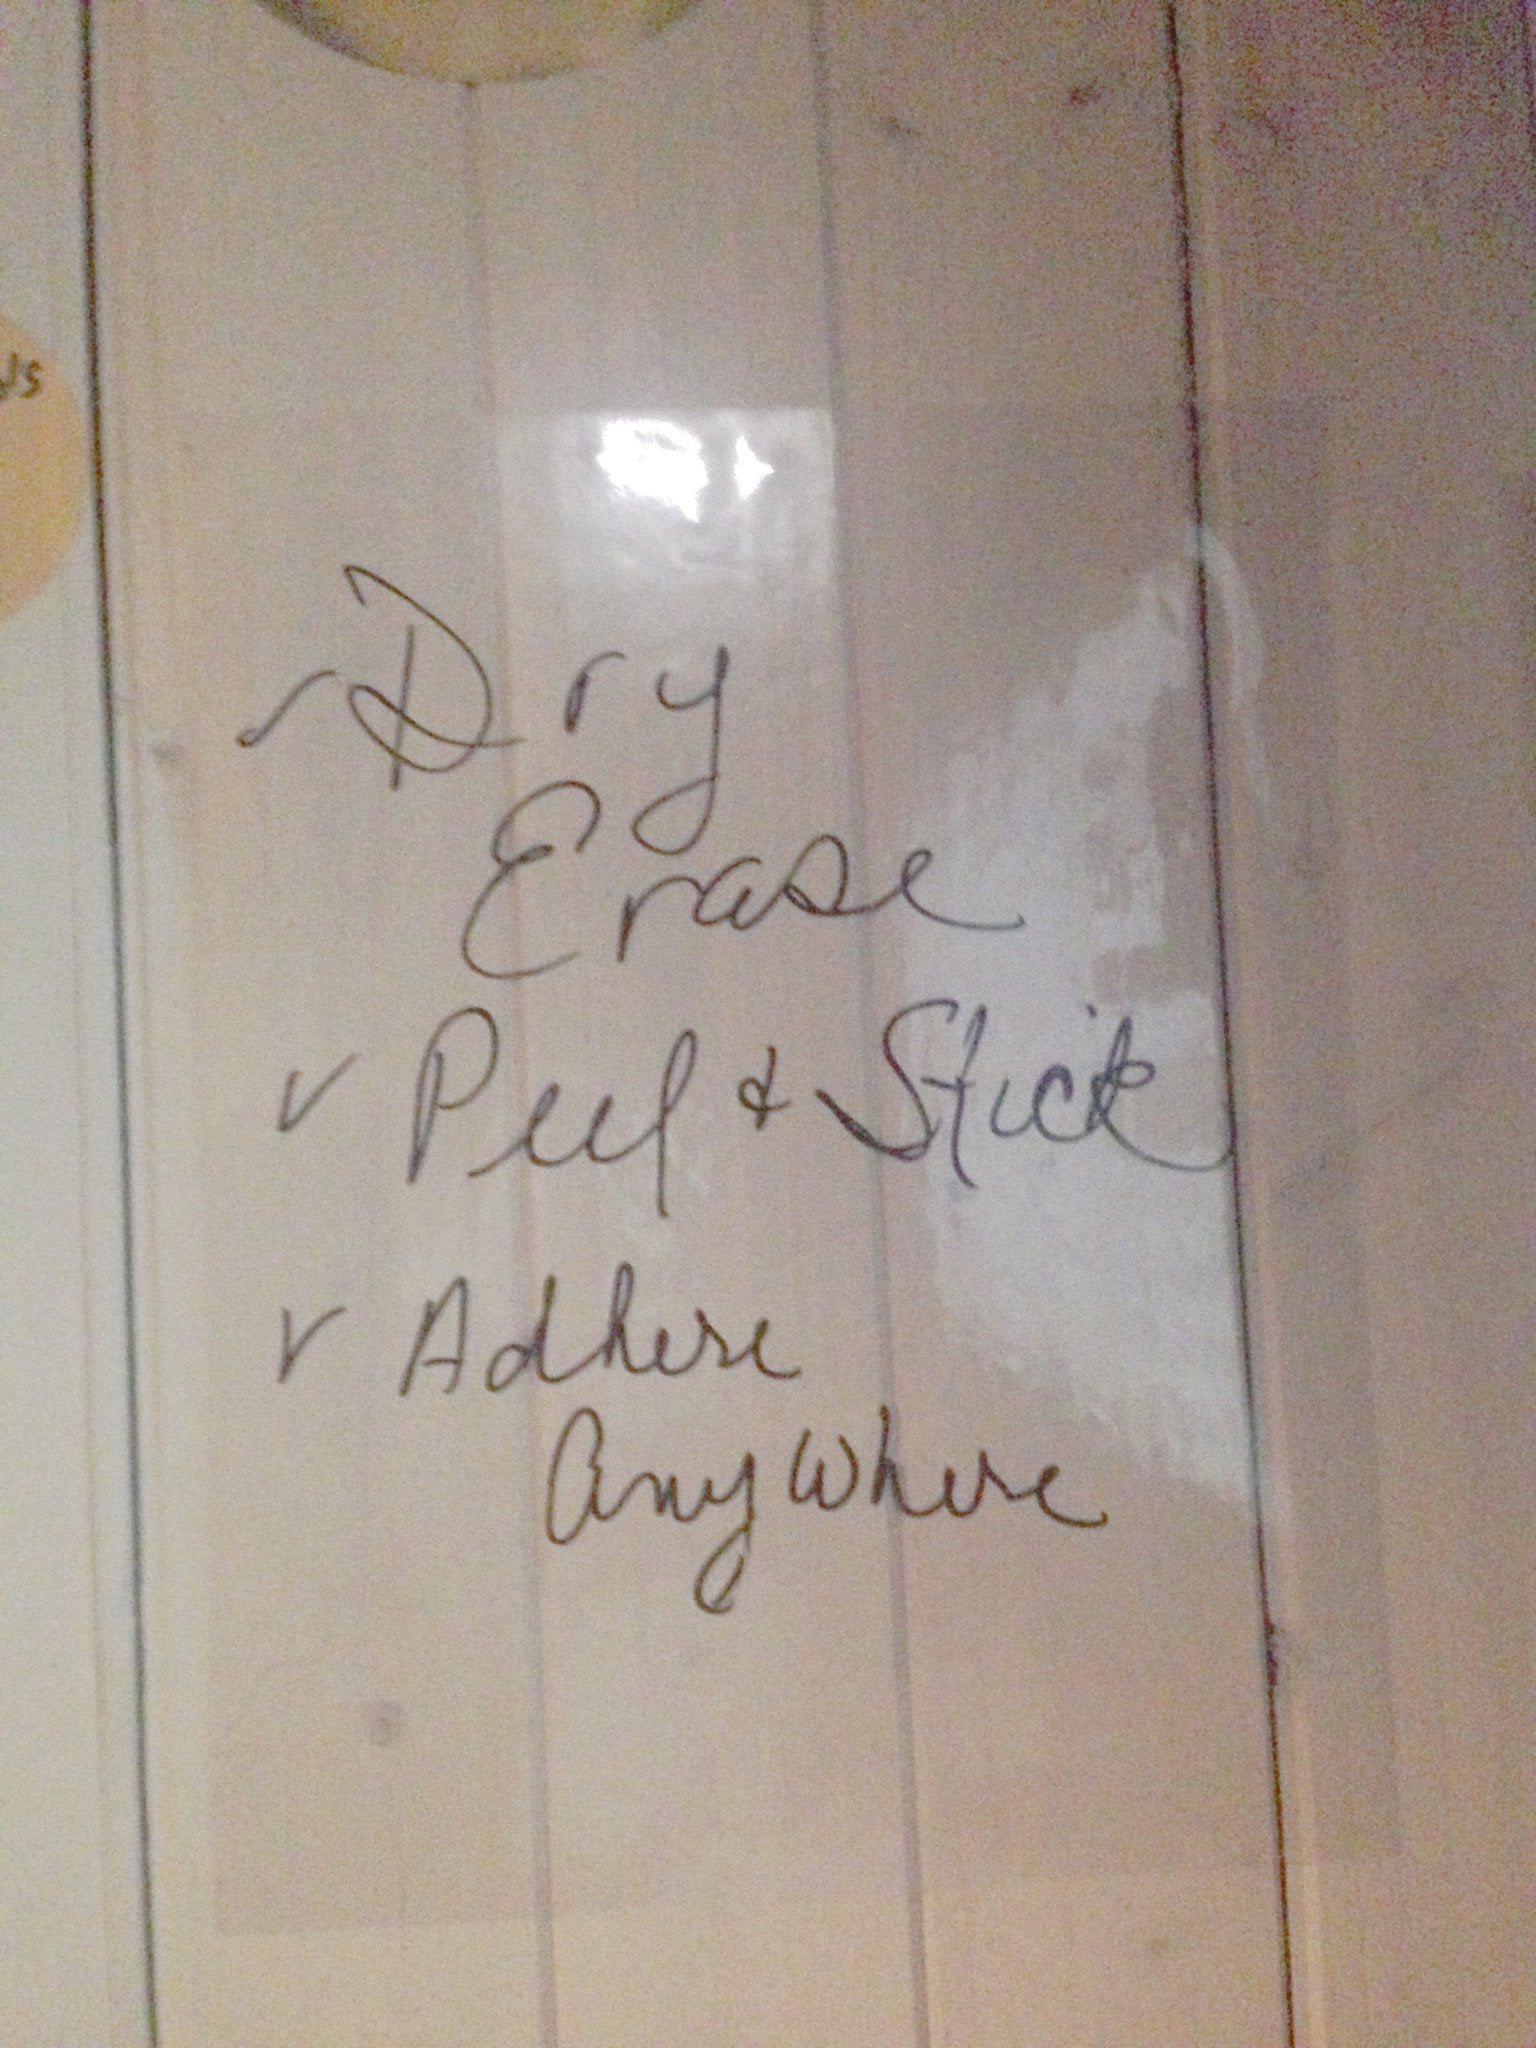 ✓ Dry
Erase
✓ Peel & Stick
✓ Adhere
AnyWhere